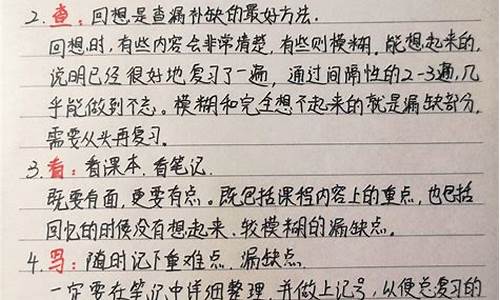 2.查:回想,是查漏补缺的最好方法.
回想时,有些内容会非常清楚,有些则模糊,能想起来的,
说明已经很好地复习了一遍,通过间隔性的2-3遍,几
乎能做到不忘。模糊和完全想不起来的就是漏缺部分,
需要从头再复习。
3.看:看课本,看笔记.
既要有面,更要有点。既包括课程内容上的重点,也包括
回忆的时候没有想起来、较模糊的漏缺点。
4.写:随时记下重难点、漏缺点.
一定要在笔记中详细整理,并做上记号,以便总复习的